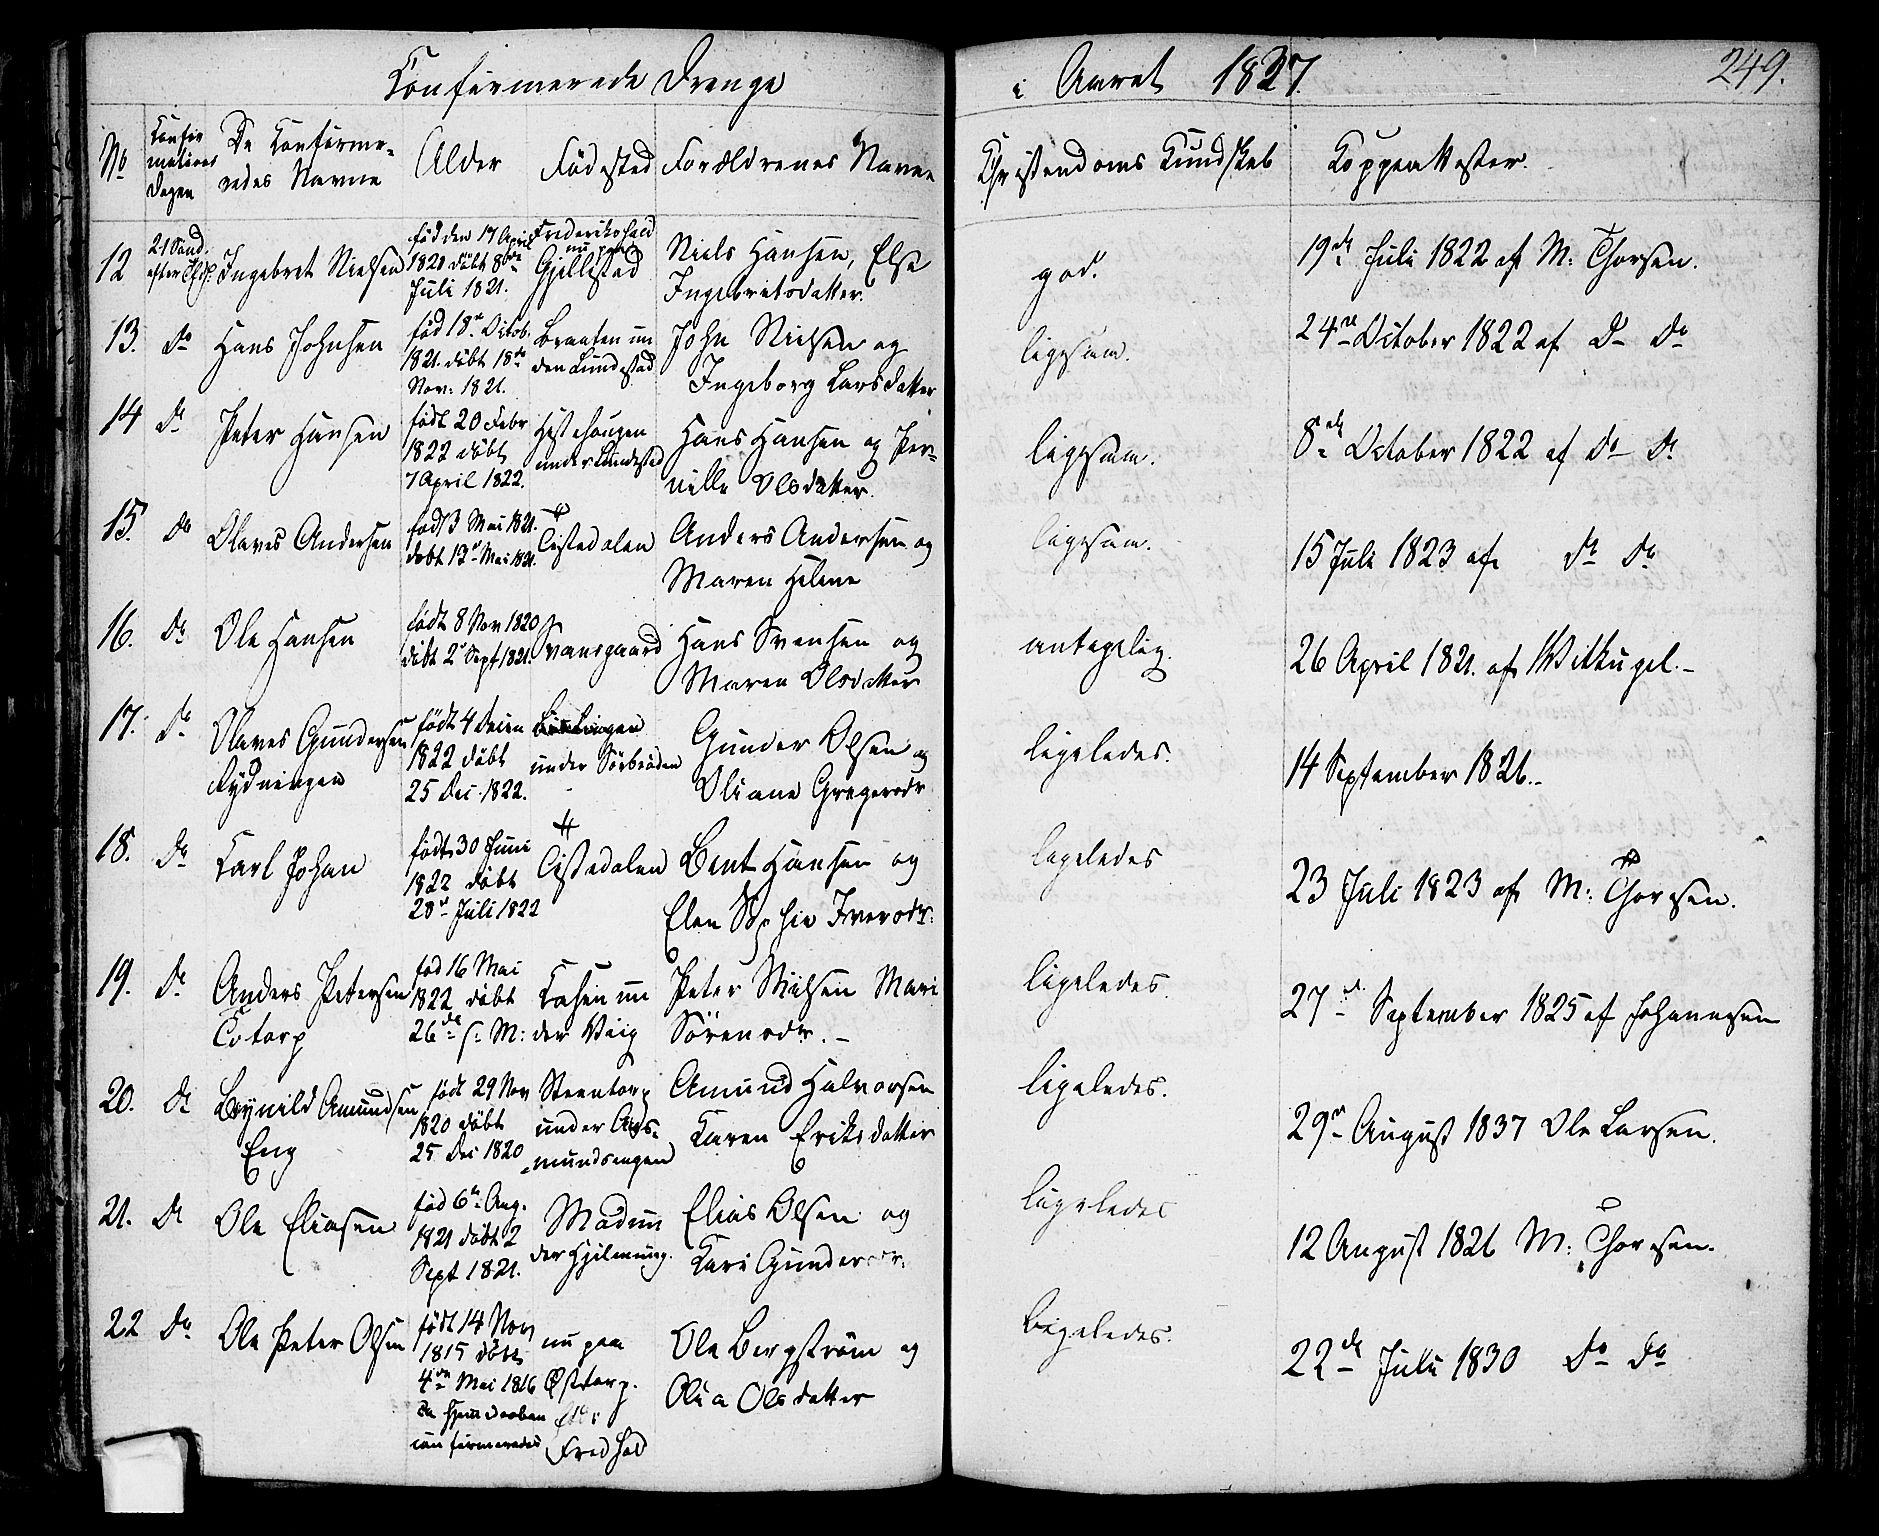 Confirmerede Drenge i Aaret 1837. 249.
No Confirmations Dagen De Confirmeredes Navne Alder Födested Forældrenes Navne Christendoms Kundskab Koppeattester.
12 21 Sønd. efter Ingebret Nielsen
fød den 17 April
1821 döbt 8de
Juli 1821.
Frederikshald
nu paa
Gjellestad
Niels Hansen, Else
Ingebretsdatter.
god.
19de Juli 1822 af M: Thorsen.
13. Do Hans Johnsen
fød 18de Octob.
1821. döbt 18de
Nov: 1821.
Braaten un
den Lundestad
John Nielsen og
Ingeborg Larsdatter
ligesaa.
24de October 1822 af Do Do
14 Do Peter Hansen
født 20 Febr
1822 döbt
7 April 1822.
Hestehaugen
under Lundestad
Hans Hansen og Per-
nille Olsdatter.
ligesaa.
8de October 1822 af Do Do
15. Do Olaves Andersen
født 3 Mai 1821.
döbt 13de Mai 1821.
Tistedalen
Anders Andersen og
Maren Helene
ligesaa.
15 Juli 1823 af Do Do
16. Do Ole Hansen
født 8 Nov 1820
döbt 2de Sept 1821.
Svansgaard
Hans Svensen og
Maren Olsdatter
antagelig.
26 April 1821. af Witkugel.-
17. Do Olaves Gundersen
Rydningen
født 4 Decem
1822 döbt
25 Dec. 1822.
under Sörbröden
Gunder Olsen og
Oliane Gregersdr
ligeledes.
14 September 1826.-
18. Do Carl Johan
født 30 Juni
1822 döbt
28de Juli 1822
Tistedalen
Bent Hansen og
Elen Sophie Iversdr:
ligeledes
23 Juli 1823 af M: Thorsen.
19. Do Anders Petersen
Totorp
fød 16 Mai
1822 döbt
26de s: M:
Kasen un
der Veig
Peter Nielsen Mari
Sörensdr. -
ligeledes.
27de September 1825 af Johannesen
20. Do Brynild Amundsen
Eng
født 29 Nov
1820 döbt
25 Dec 1820
Steentorp
under Aas-
mundsengen
Amund Halvorsen
Karen Eriksdatter
ligeledes.
29de August 1837 Ole Larsen.
21. Do Ole Eliasen
fød 6te Aug.
1821 döbt 2
Sept 1821.
Mad un
der Hjelmung.
Elias Olsen og
Kari Gundersdr.
ligeledes
12 August 1826 M: Thorsen.
22 Do Ole Peter Olsen
født 14 Nov
1815 döbt
4de Mai 1816
confirmeredes
nu paa
Østtorp.
Fredhald
Ole Bergström og
Olia Olsdatter
ligeledes.
22de Juli 1830 Do Do